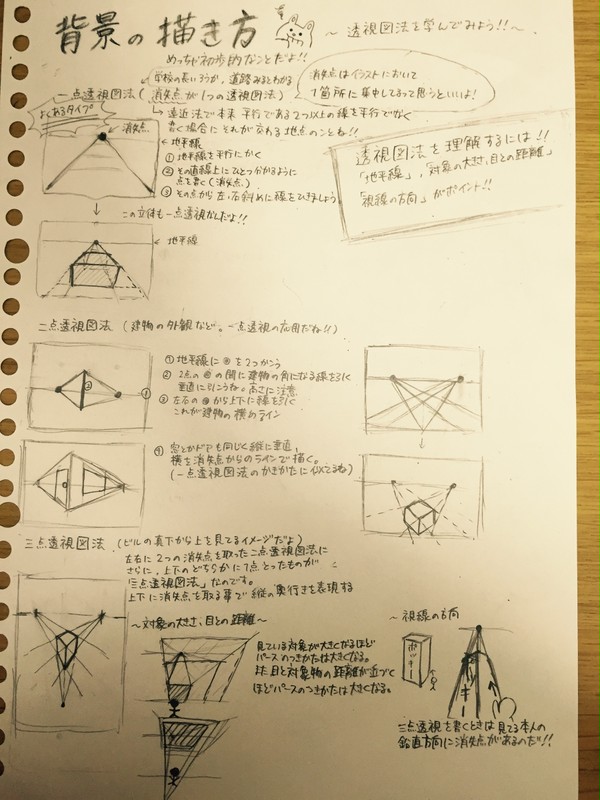 背景の描き方
〜透視図法を学んでみよう!!〜
めっちゃ初歩的なことだよ!!
学校の長いろうか、道路みるとわかる
一点透視図法(消失点が1つの透視図法)
消失点はイラストにおいて
1箇所に集中してるって思うといいよ!
よくあるタイプ
遠近法で本来平行である2つ以上の線を平行でなく
書く場合にそれが交わる地点のことね!!
消失点
地平線
①地平線を平行にかく
②その直線上にひとつ分かるように
点を書く(消失点)
③その点から左、右斜めに線をひきましょう
透視図法を理解するには!!
「地平線」,「対象の大きさ、目との距離」
「視線の方向」がポイント!!
この立体も一点透視なんだよ!!
地平線
二点透視図法(建物の外観など。一点透視の応用だね!!)
①地平線に◉を2つかこう
②2点の◉の間に建物の角になる線を引く
垂直に引こうね。高さに注意
③左右の◉から上下に線を引く
これが建物の横のライン
②
①
④窓とかドアも同じく縦に垂直,
横を消失点からのラインで描く。
(一点透視図法のかきかたに似てるね)
三点透視図法(ビルの真下から上を見てるイメージだよ)
左右に2つの消失点を取った二点透視図法に
さらに、上下のどちらかに1点とったものが
「三点透視図法」なのです。
上下に消失点を取る事で縦の奥行きを表現する
〜対象の大きさ、目との距離〜
見ている対象が大きくなるほど
パースのつきかたは大きくなる。
また目と対象物の距離が近づく
ほどパースのつきかたは大きくなる。
〜視線の方向
ポッキー
ポッキー
三点透視を書くときは見てる本人の
鉛直方向に消失点があるのだ!!